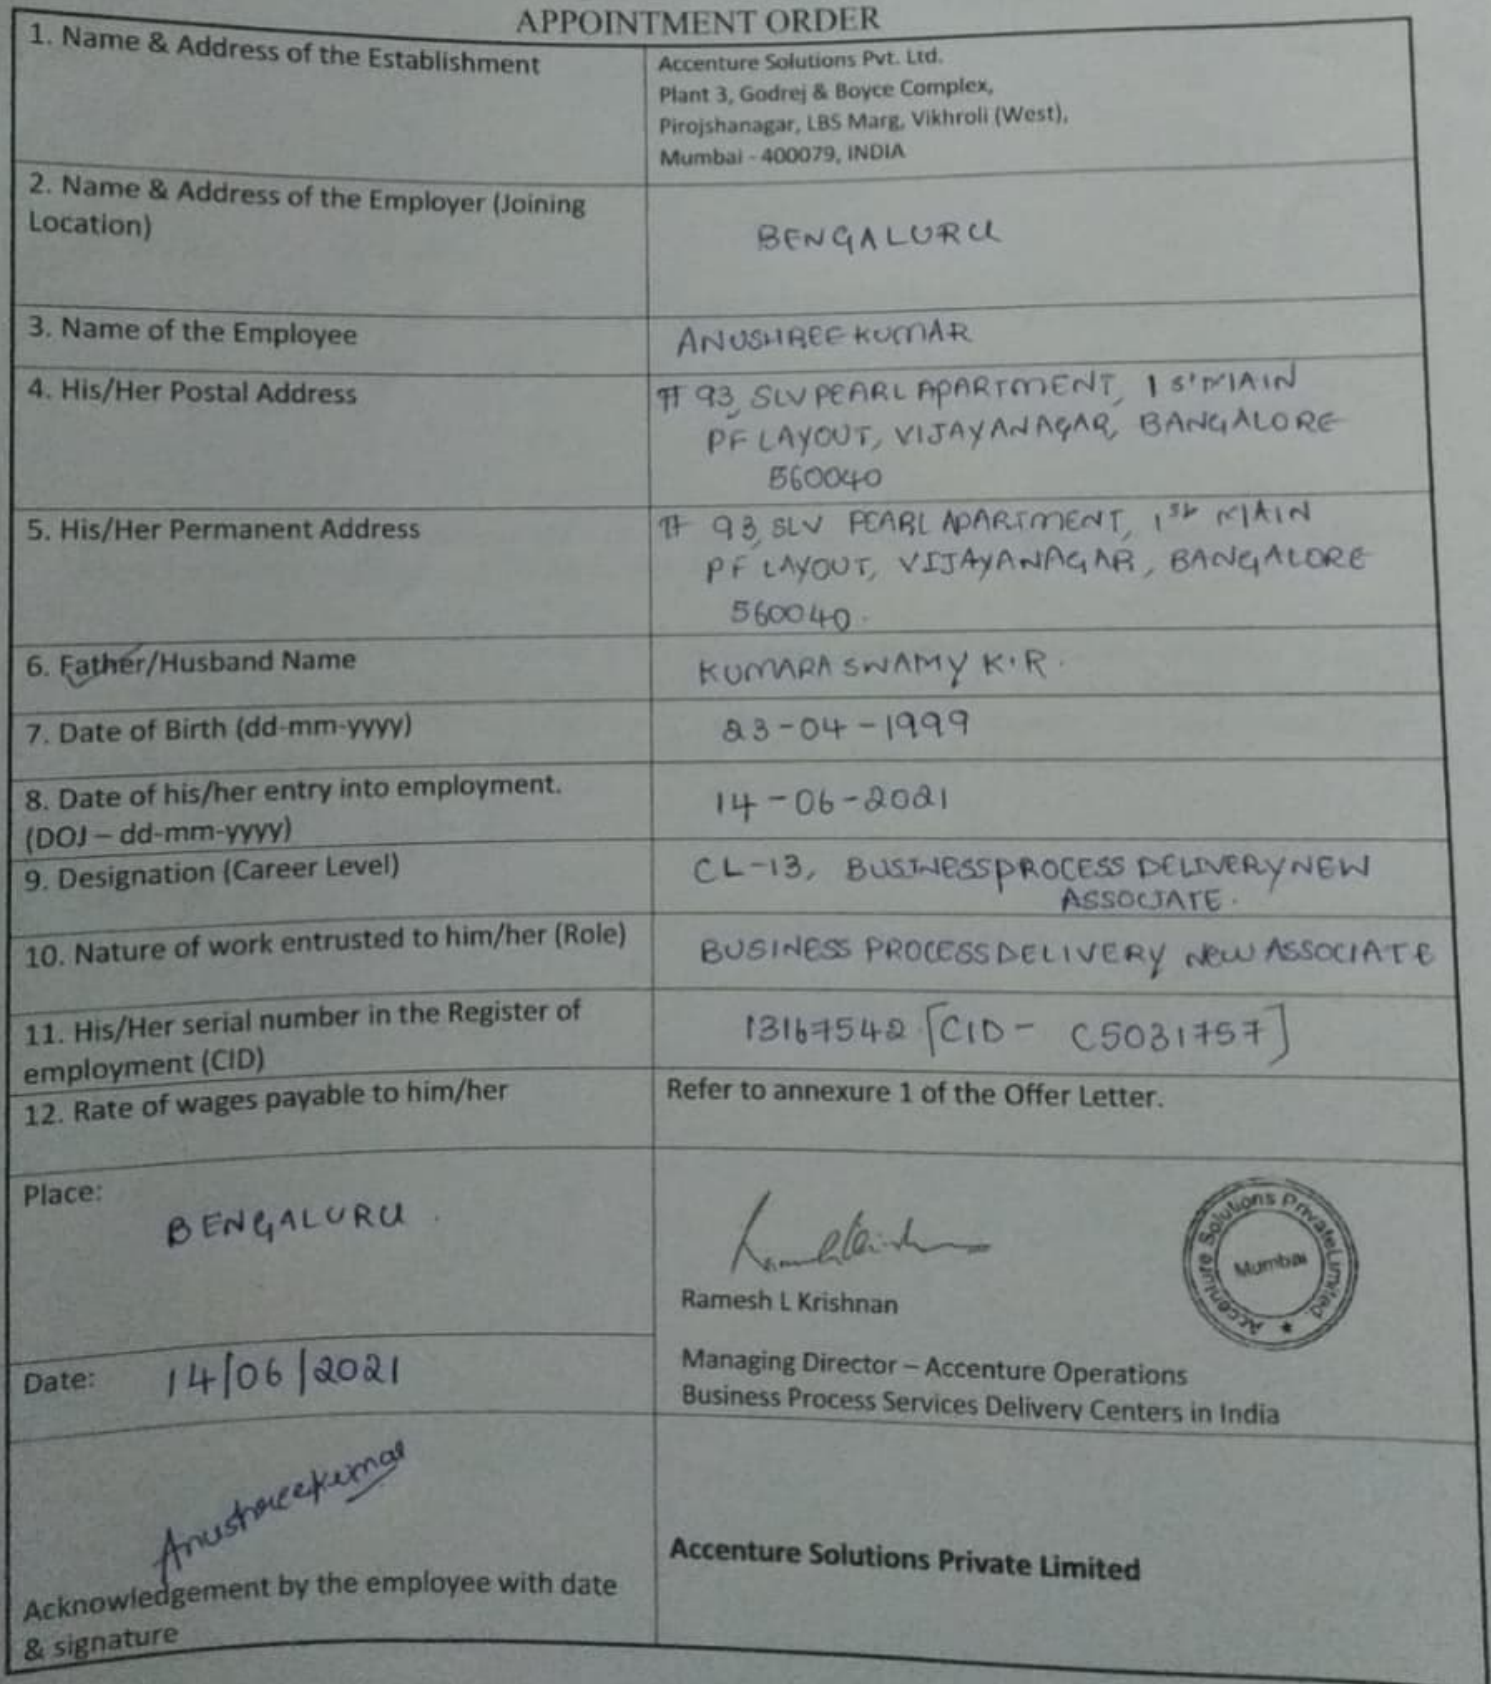 APPOINTMENT ORDER
1. Name & Address of the Establishment
Accenture Solutions Pvt. Ltd.
Plant 3, Godrej & Boyce Complex,
Pirojshanagar, LBS Marg, Vikhroli (West),
Mumbai - 400079, INDIA
2. Name & Address of the Employer (Joining
Location)
BENGALURU
3. Name of the Employee
ANUSHREE KUMAR
4. His/Her Postal Address
# 93, SLV PEARL APARTMENT, 1 ST MAIN
PF LAYOUT, VIJAYANAGAR, BANGALORE
560040
5. His/Her Permanent Address
# 93, SLV PEARL APARTMENT, 1st MAIN
PF LAYOUT, VIJAYANAGAR, BANGALORE
560040.
6. Father/Husband Name
KUMARA SWAMY K.R.
7. Date of Birth (dd-mm-yyyy)
23-04-1999
8. Date of his/her entry into employment.
(DOJ – dd-mm-yyyy)
14-06-2021
9. Designation (Career Level)
CL-13, BUSINESS PROCESS DELIVERY NEW
ASSOCIATE.
10. Nature of work entrusted to him/her (Role)
BUSINESS PROCESS DELIVERY NEW ASSOCIATE
11. His/Her serial number in the Register of
employment (CID)
13167542 [CID - C5031757]
12. Rate of wages payable to him/her
Refer to annexure 1 of the Offer Letter.
Place:
BENGALURU.
Accenture Solutions Private Limited
Mumbai
Ramesh L Krishnan
Managing Director – Accenture Operations
Business Process Services Delivery Centers in India
Date: 14/06/2021
Anushreekumar
Acknowledgement by the employee with date
& signature
Accenture Solutions Private Limited